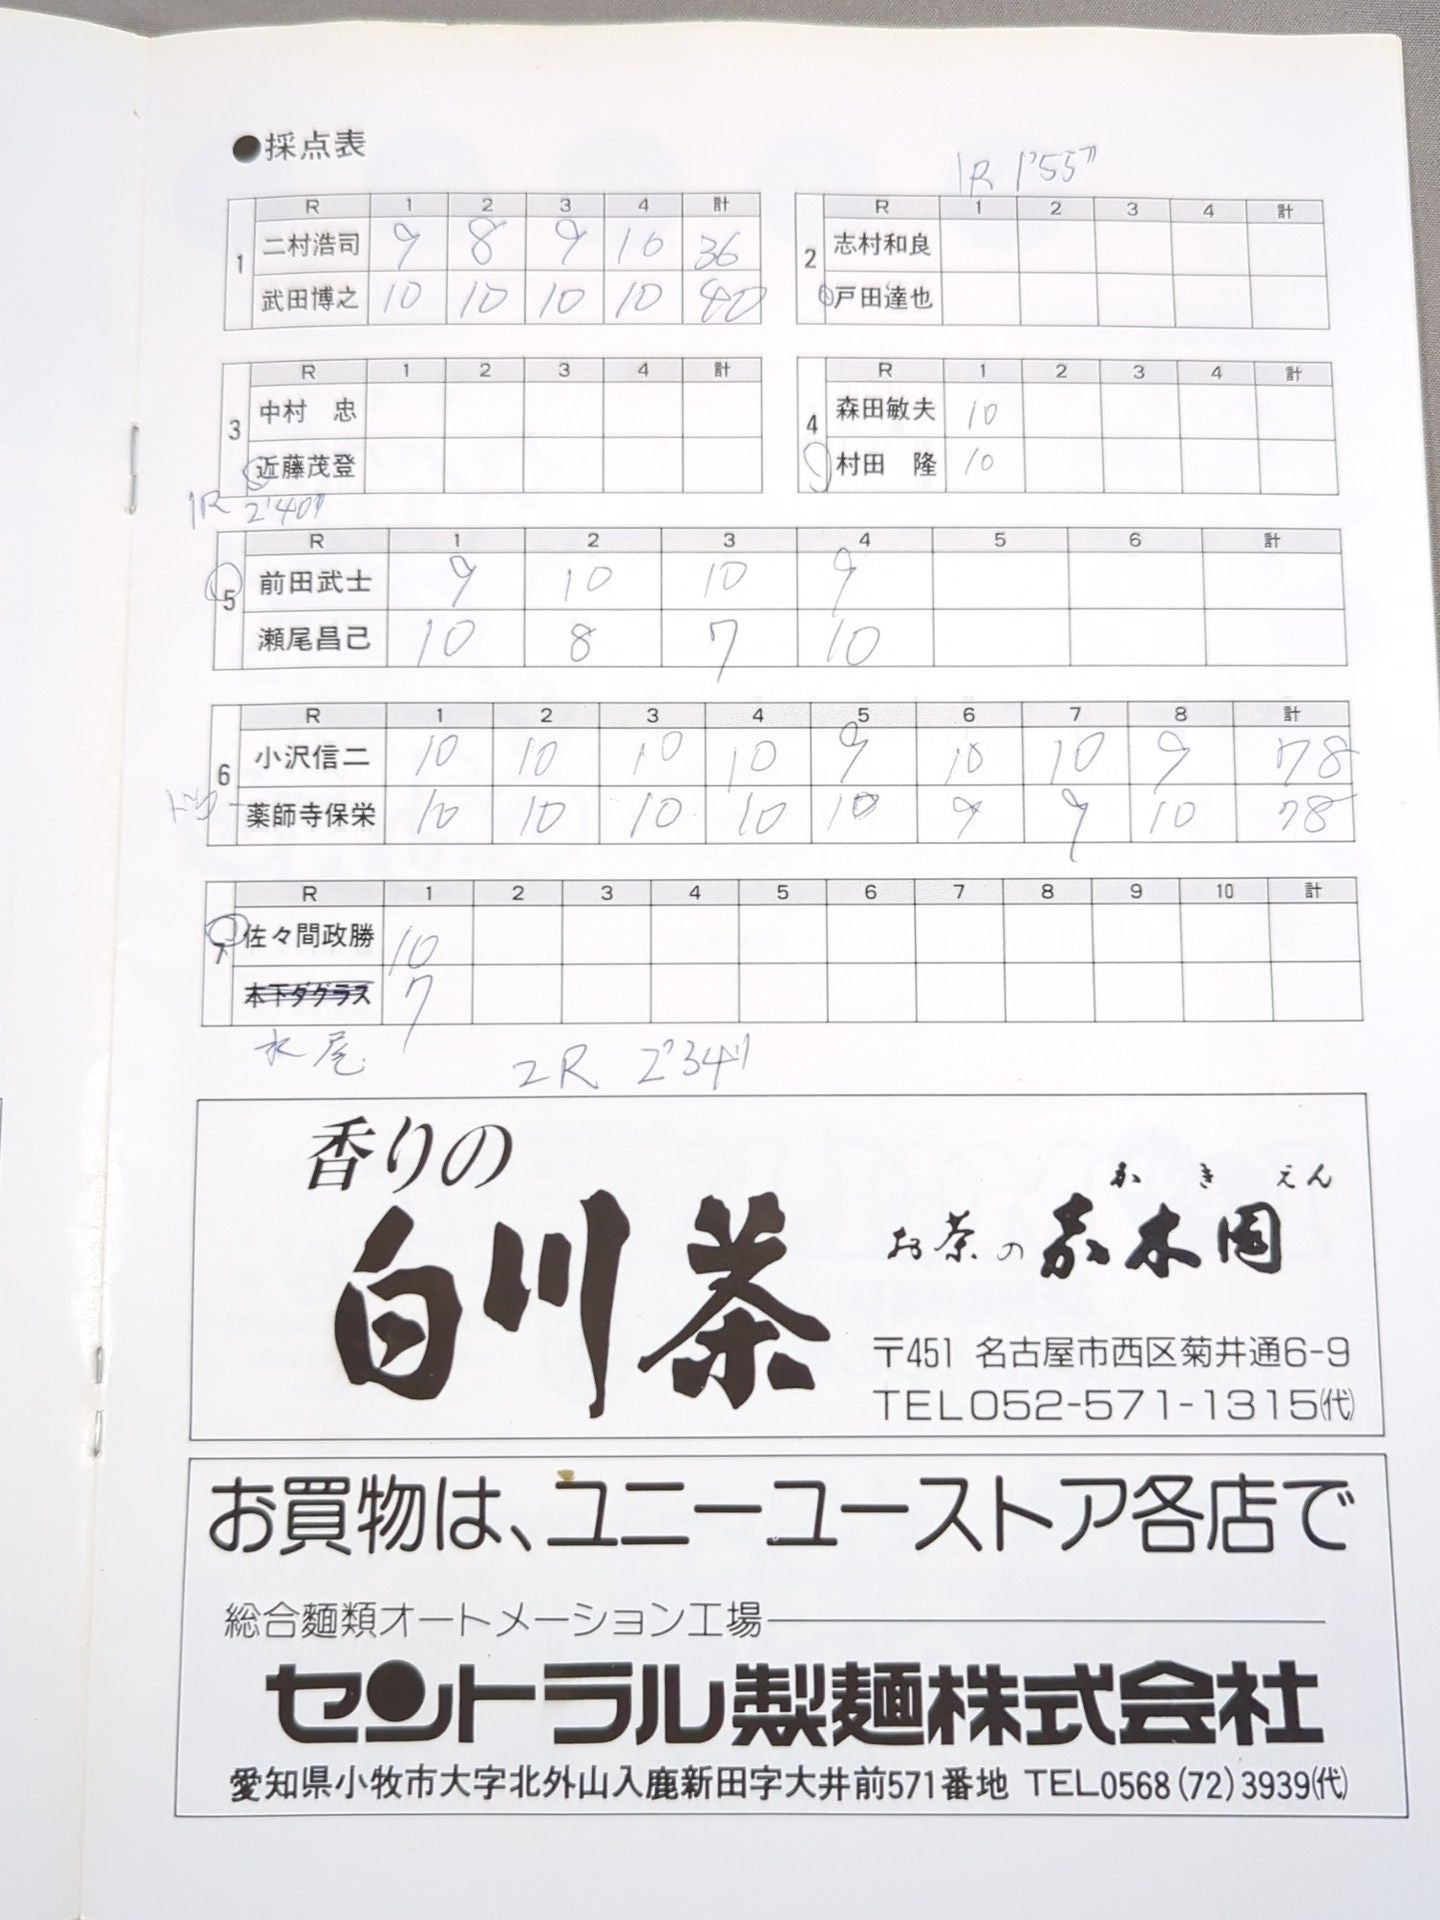 ●採点表
1R 1'55"
1 R 1 2 3 4 計
二村浩司 9 8 9 10 36
武田博之 10 10 10 10 40
2 R 1 2 3 4 計
志村和良
戸田達也
3 R 1 2 3 4 計
中村 忠
近藤茂登
1R 2'40"
4 R 1 2 3 4 計
森田敏夫 10
村田 隆 10
5 R 1 2 3 4 5 6 計
前田武士 9 10 10 9
瀬尾昌己 10 8 7 10
6 R 1 2 3 4 5 6 7 8 計
小沢信二 10 10 10 10 9 10 10 9 78
薬師寺保栄 10 10 10 10 10 9 9 10 78
7 R 1 2 3 4 5 6 7 8 9 10 計
佐々間政勝 10
木下ダグラス 7
水尾
2R 2'34"
香りの
白川茶
かきえん
お茶の
〒451 名古屋市西区菊井通6-9
TEL052-571-1315㈹
お買物は、ユニーユーストア各店で
総合麺類オートメーション工場
セントラル製麺株式会社
愛知県小牧市大字北外山入鹿新田字大井前571番地 TEL0568(72)3939㈹